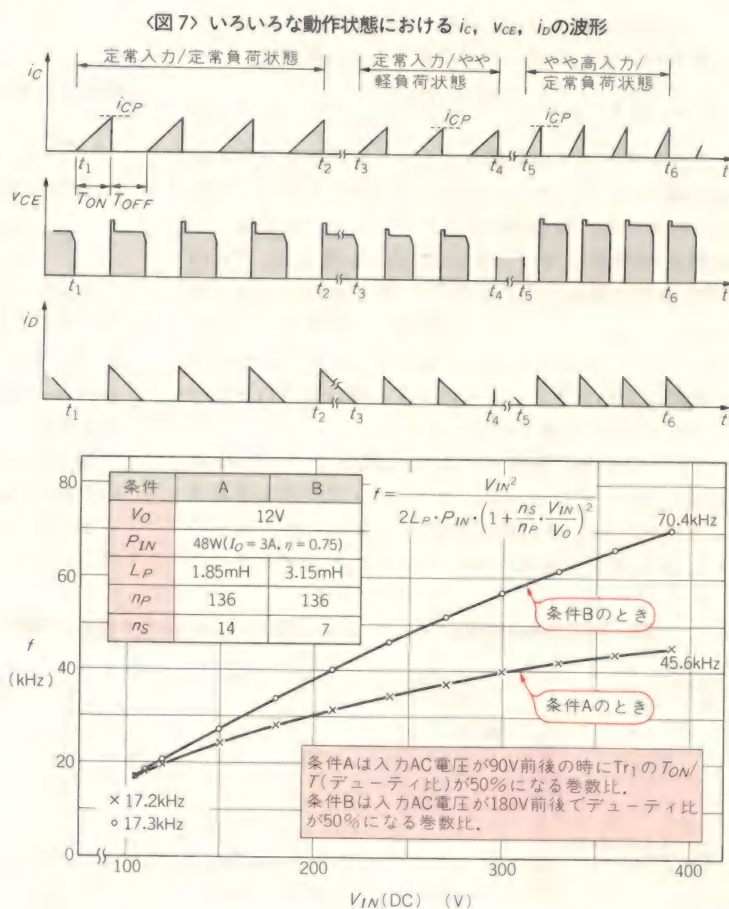 〈図7〉いろいろな動作状態における iC，vCE，iDの波形
定常入力/定常負荷状態
定常入力/やや
軽負荷状態
やや高入力/
定常負荷状態
iC
iCP
iCP
iCP
t1
t2
t3
t4
t5
t6
t
TON
TOFF
vCE
t1
t2
t3
t4
t5
t6
t
iD
t1
t2
t3
t4
t5
t6
t
条件 A B
VO 12V
PIN 48W(IO＝3A，η＝0.75)
LP 1.85mH 3.15mH
nP 136 136
nS 14 7
f＝VIN²/2LP・PIN・(1＋nS/nP・VIN/VO)²
70.4kHz
条件Bのとき
45.6kHz
条件Aのとき
80
60
f
40
(kHz)
20
0
× 17.2kHz
○ 17.3kHz
条件Aは入力AC電圧が90V前後の時にTr1のTON/
T(デューティ比)が50%になる巻数比．
条件Bは入力AC電圧が180V前後でデューティ比
が50%になる巻数比．
100 200 300 400
VIN(DC) (V)